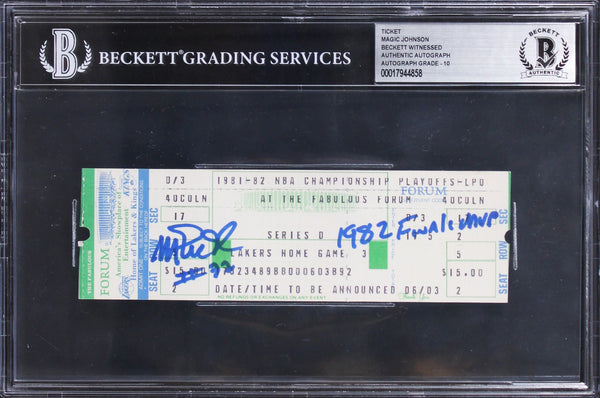 BECKETT® GRADING SERVICES
TICKET
MAGIC JOHNSON
BECKETT WITNESSED
AUTHENTIC AUTOGRAPH
AUTOGRAPH GRADE - 10
00017944858
BECKETT
B
AUTHENTIC
B
THE FABULOUS
FORUM
America's Showplace of
Entertainment
Home of Lakers & Kings
KINGS
SEAT ROW SEC
D/3
40COLN
17
$15.00
2
1981-82 NBA CHAMPIONSHIP PLAYOFFS-LPO
AT THE FABULOUS FORUM
SERIES D
LAKERS HOME GAME 3
DATE/TIME TO BE ANNOUNCED 06/03
NO REFUNDS OR EXCHANGES ON ANY EVENT
FORUM
Thank You
1982 Finals MVP
#32
40COLN
17
5
$15.00
2
SEAT ROW SEC